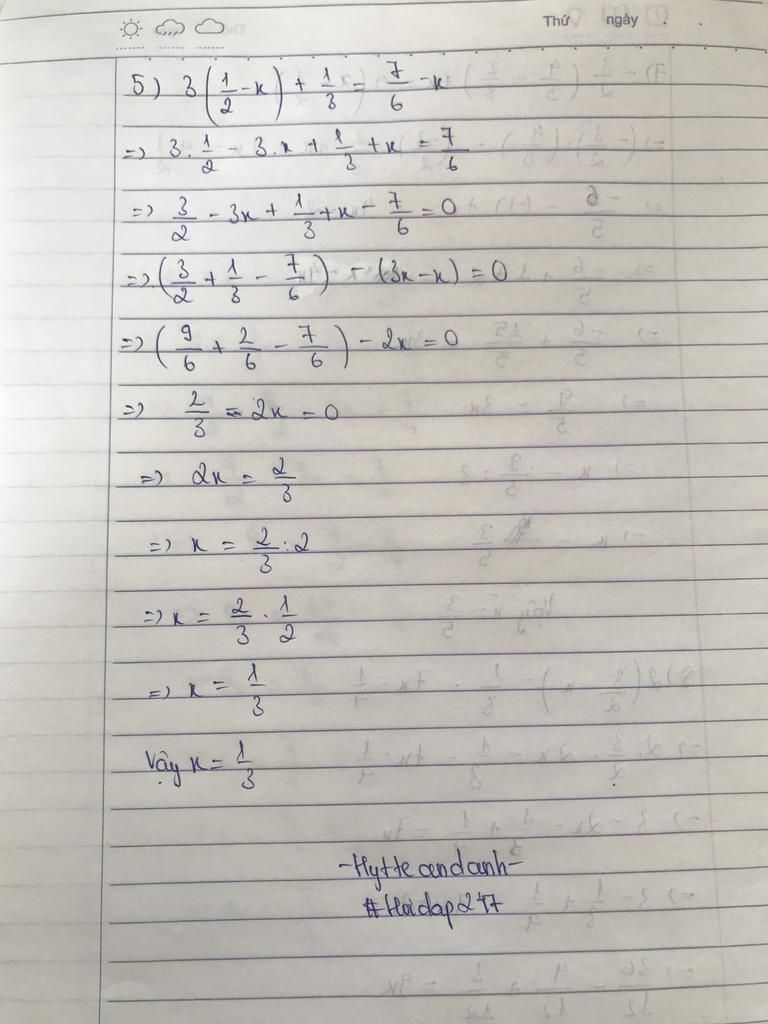 Thứ ngày . .
5) 3(1/2 - x) + 1/3 = 7/6 - x
=> 3 . 1/2 - 3 . x + 1/3 + x = 7/6
=> 3/2 - 3x + 1/3 + x - 7/6 = 0
=> (3/2 + 1/3 - 7/6) - (3x - x) = 0
=> (9/6 + 2/6 - 7/6) - 2x = 0
=> 2/3 - 2x = 0
=> 2x = 2/3
=> x = 2/3 : 2
=> x = 2/3 . 1/2
=> x = 1/3
Vậy x = 1/3
-Hytteandanh-
#Hoidap247